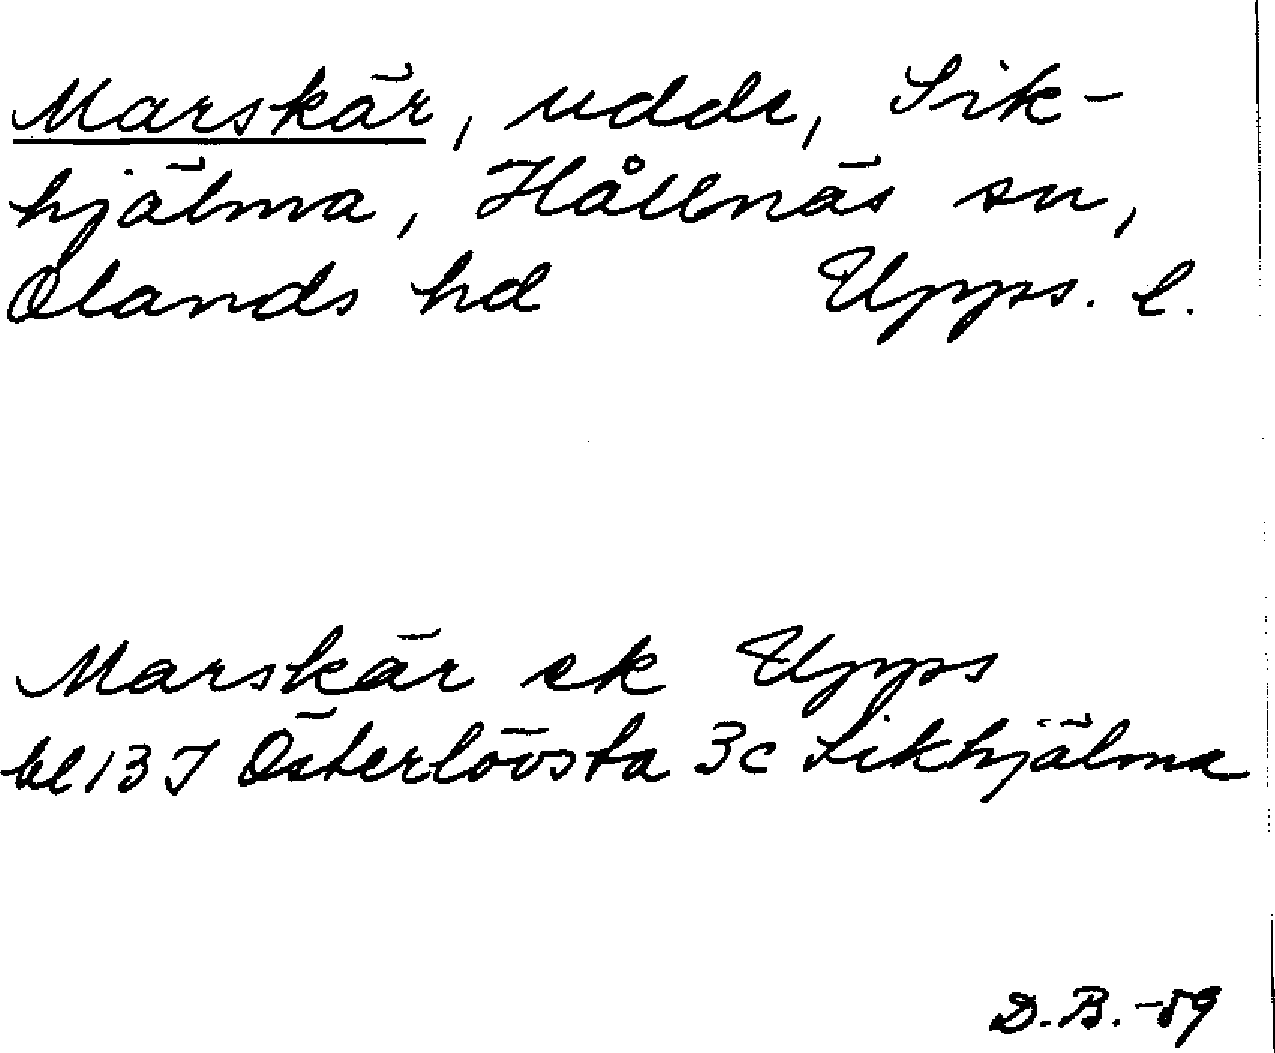 Marskär, udde, Sik-
hjälma, Hållnäs sn,
Olands hd Upps. l.
Marskär ek Upps
bl 13 I Österlövsta 3c Sikhjälma
D.B. -59